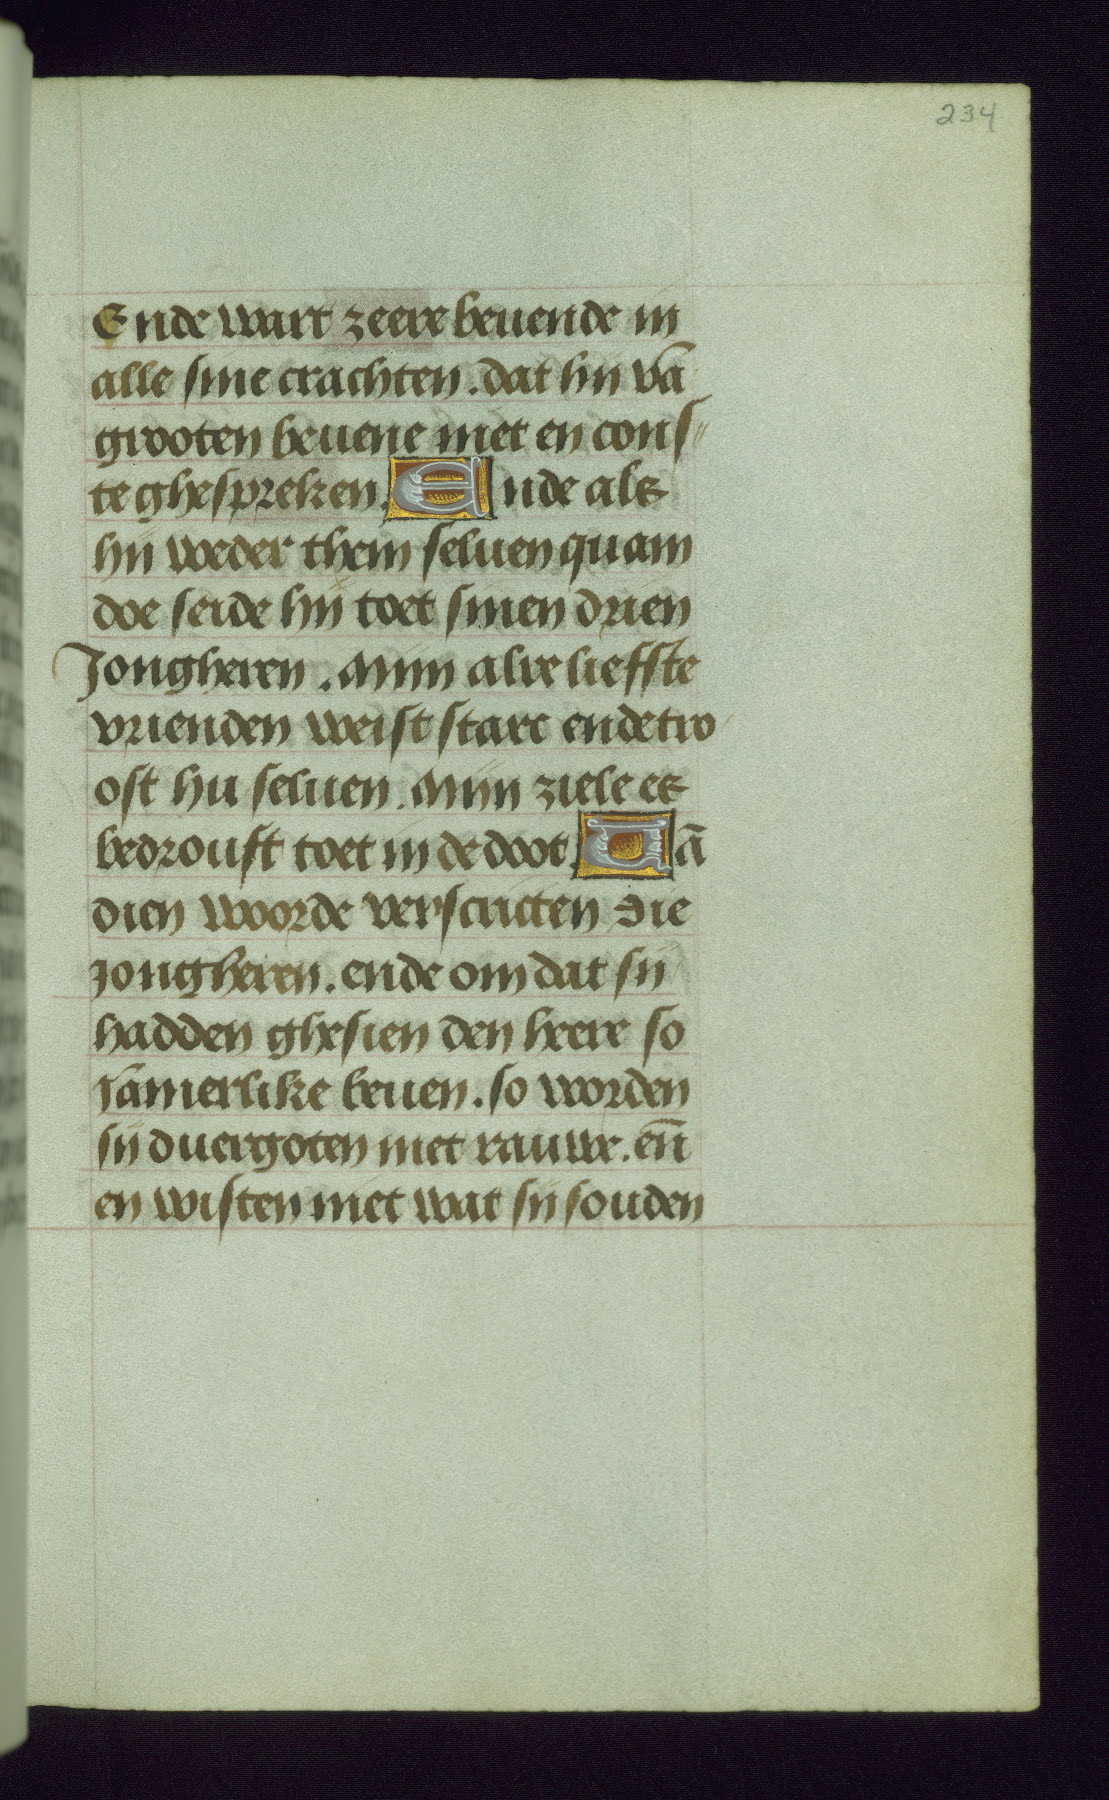 234
Ende wart zeere beuende in
alle sine crachten. dat hij vā
grooten beuene niet en cons〃
te ghespreken. Ende als
hij weder them seluen quam
doe seide hij toet sinen drien
Jongheren. Mijn alre liefste
vrienden weist starc ende tro
ost hu seluen. Mijn ziele es
bedrouft toet in de doot. Uā
dien woorde verscricten die
jongheren. ende om dat sij
hadden ghesien den heere so
Jamerlike beuen. so worden
sij duergoten met rauwe. eñ
en wisten niet wat sij souden